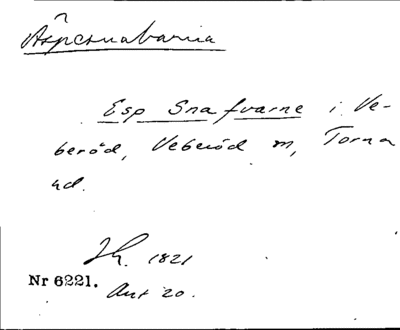 Äspesnavarna
Esp Snafvarne i Ve-
beröd, Veberöd sn, Torna
hd.
1821
Nr 6221.
Akt 20.